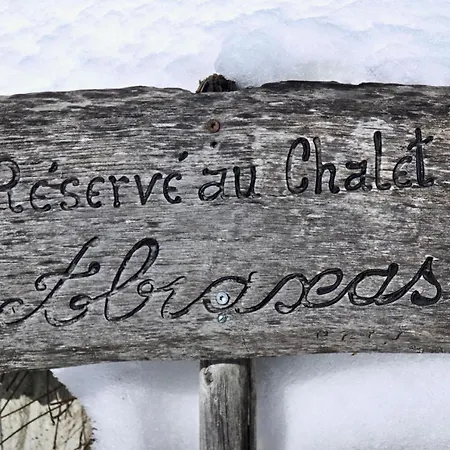 Réservé au Chalet
Abraxas